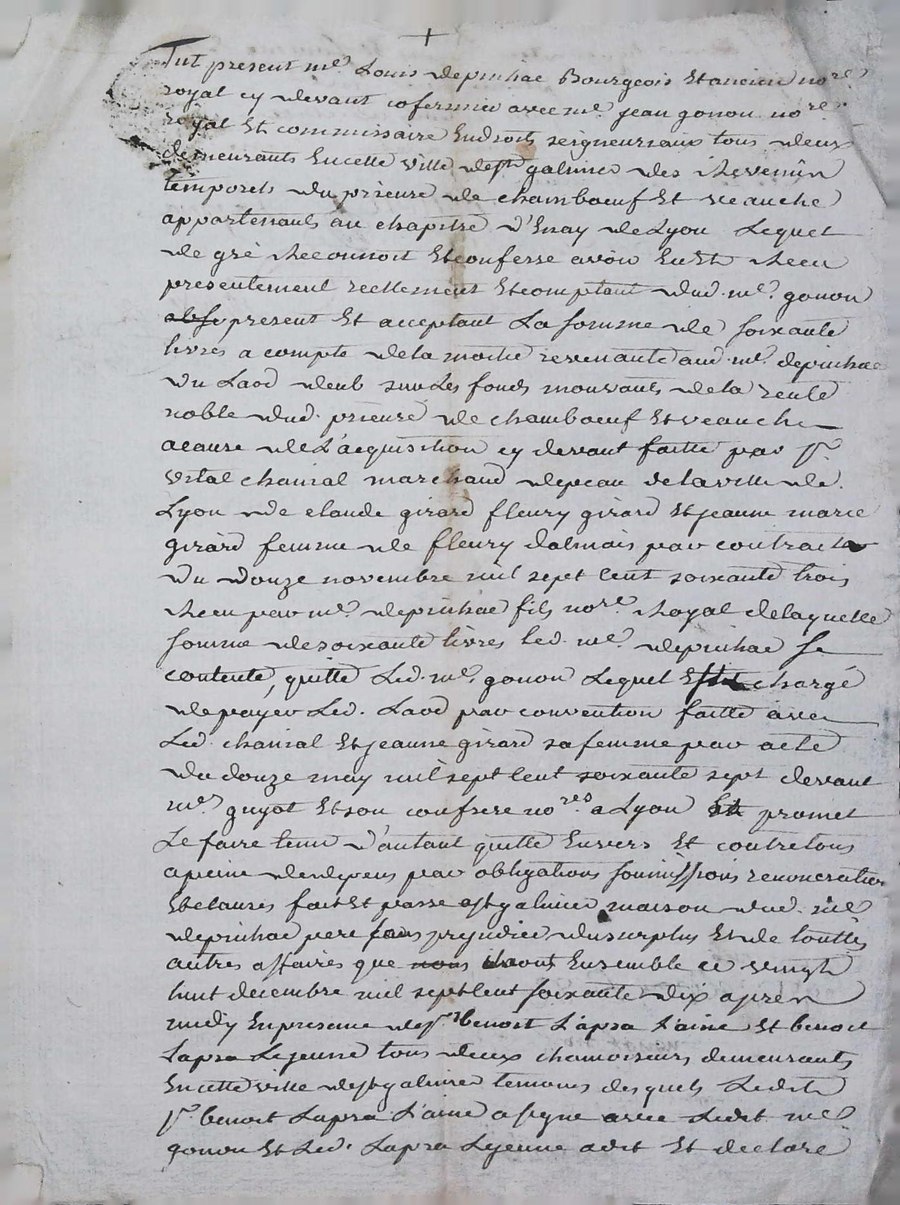 +
Fut present me. Louis depinhac Bourgeois Et ancien nore.
royal cy devant cofermier avec me. jean gonon nore.
royal Et commissaire En droits seigneuriaux tous deux
demeurants En cette ville de st galmier des Revenûn
temporels du prieuré de chambœuf Et veauche
appartenants au chapitre d'Enay de Lyon Lequel
de gré Reconnoit Et confesse avoir Eu Et Receu
presentement reellement Et comptant dud. me. gonon
present Et acceptant La somme de soixante
livres a compte de la moitié revenante aud. me. depinhac
du Laod deub sur Les fonds mouvants de la rente
noble dud. prieuré de chambœuf Et veauche
a cause de L'acquisition cy devant faitte par sr.
vital chanial marchand de peau de la ville de
Lyon de claude girard fleury girard Et jeanne marie
girard femme de fleury dalmais par contract
du douze novembre mil sept cent soixante trois
Receu par me. depinhac fils nore. Royal de laquelle
somme de soixante livres led. me. depinhac se
contente, quitte Led. me. gonon Lequel Est chargé
de payer Led. Laod par convention faitte avec
Led. chanial Et jeanne girard sa femme par acte
du douze may mil sept cent soixante sept devant
me. guyot Et son confrere nores. a Lyon Et promet
Le faire tenir d'autant quitte Envers Et contre tous
a peine de depens par obligations soumissions renonciation
Et clauses fait Et passé a st galmier maison dud. me.
depinhac pere sans prejudice du surplus Et de touttes
autres affaires que nous ils ont Ensemble ce vingt
huit decembre mil sept cent soixante dix apren
midy En presence de sr. benoit Lapra L'ainé Et benoit
Lapra Le jeune tous deux chamoiseurs demeurants
En cette ville de st galmier temoins desquels Ledit
sr. benoit Lapra L'ainé a signé avec Ledit me.
gonon Et Led. Lapra Le jeune a dit Et declaré